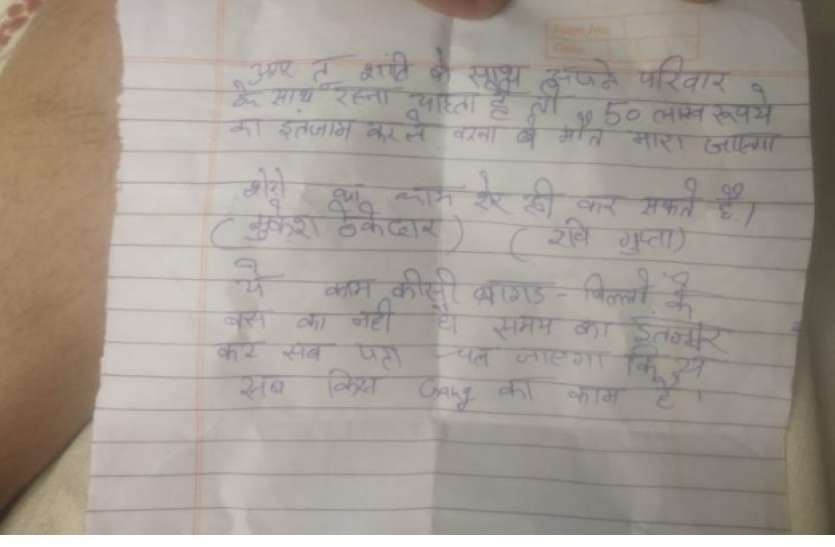 अगर तू शांति के साथ अपने परिवार
के साथ रहना चाहता है तो 50 लाख रूपये
का इंतजाम कर ले वरना बे मौत मारा जाएगा
शेरो का काम शेर ही कर सकते है।
(मुकेश ठेकेदार) (रवि गुप्ता)
ये काम कीसी बागड़-बिल्लो के
बस का नही है। समय का इंतजार
कर सब पता चल जाएगा कि ये
सब किस Gang का काम है।